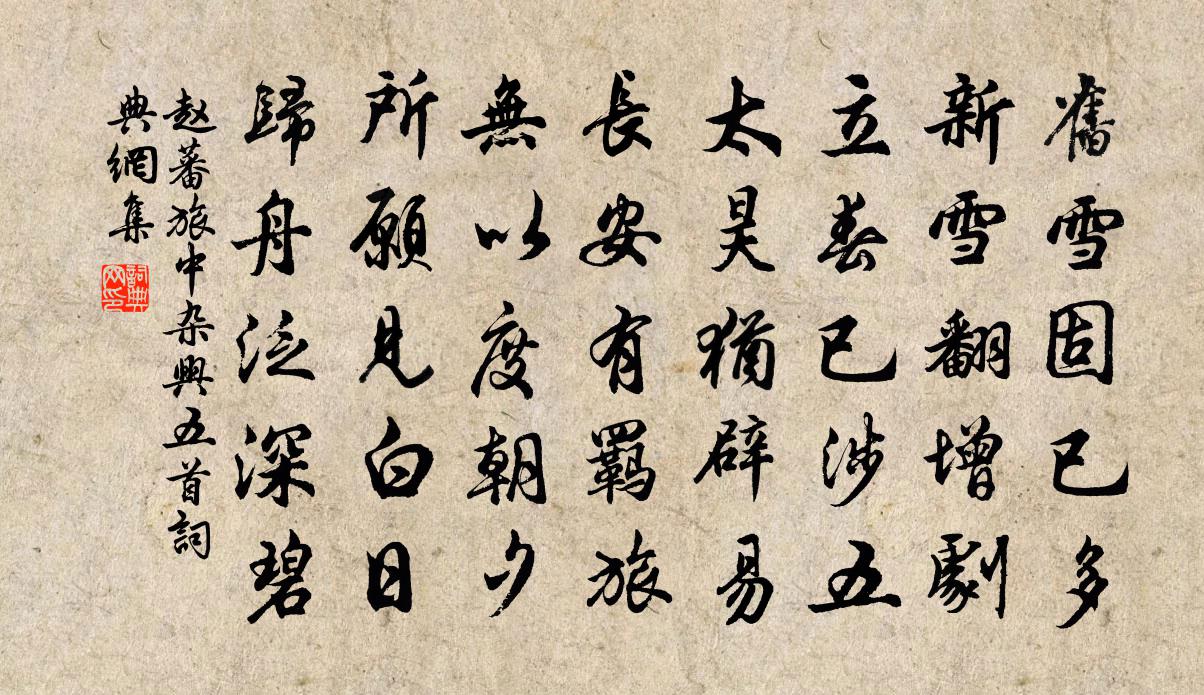 舊雪固已多
新雪翻增劇
立春已涉五
太昊猶辟易
長安有羈旅
無以度朝夕
所願見白日
歸舟泛深碧
赵蕃旅中杂興五首詞
典網集
詞典
网印